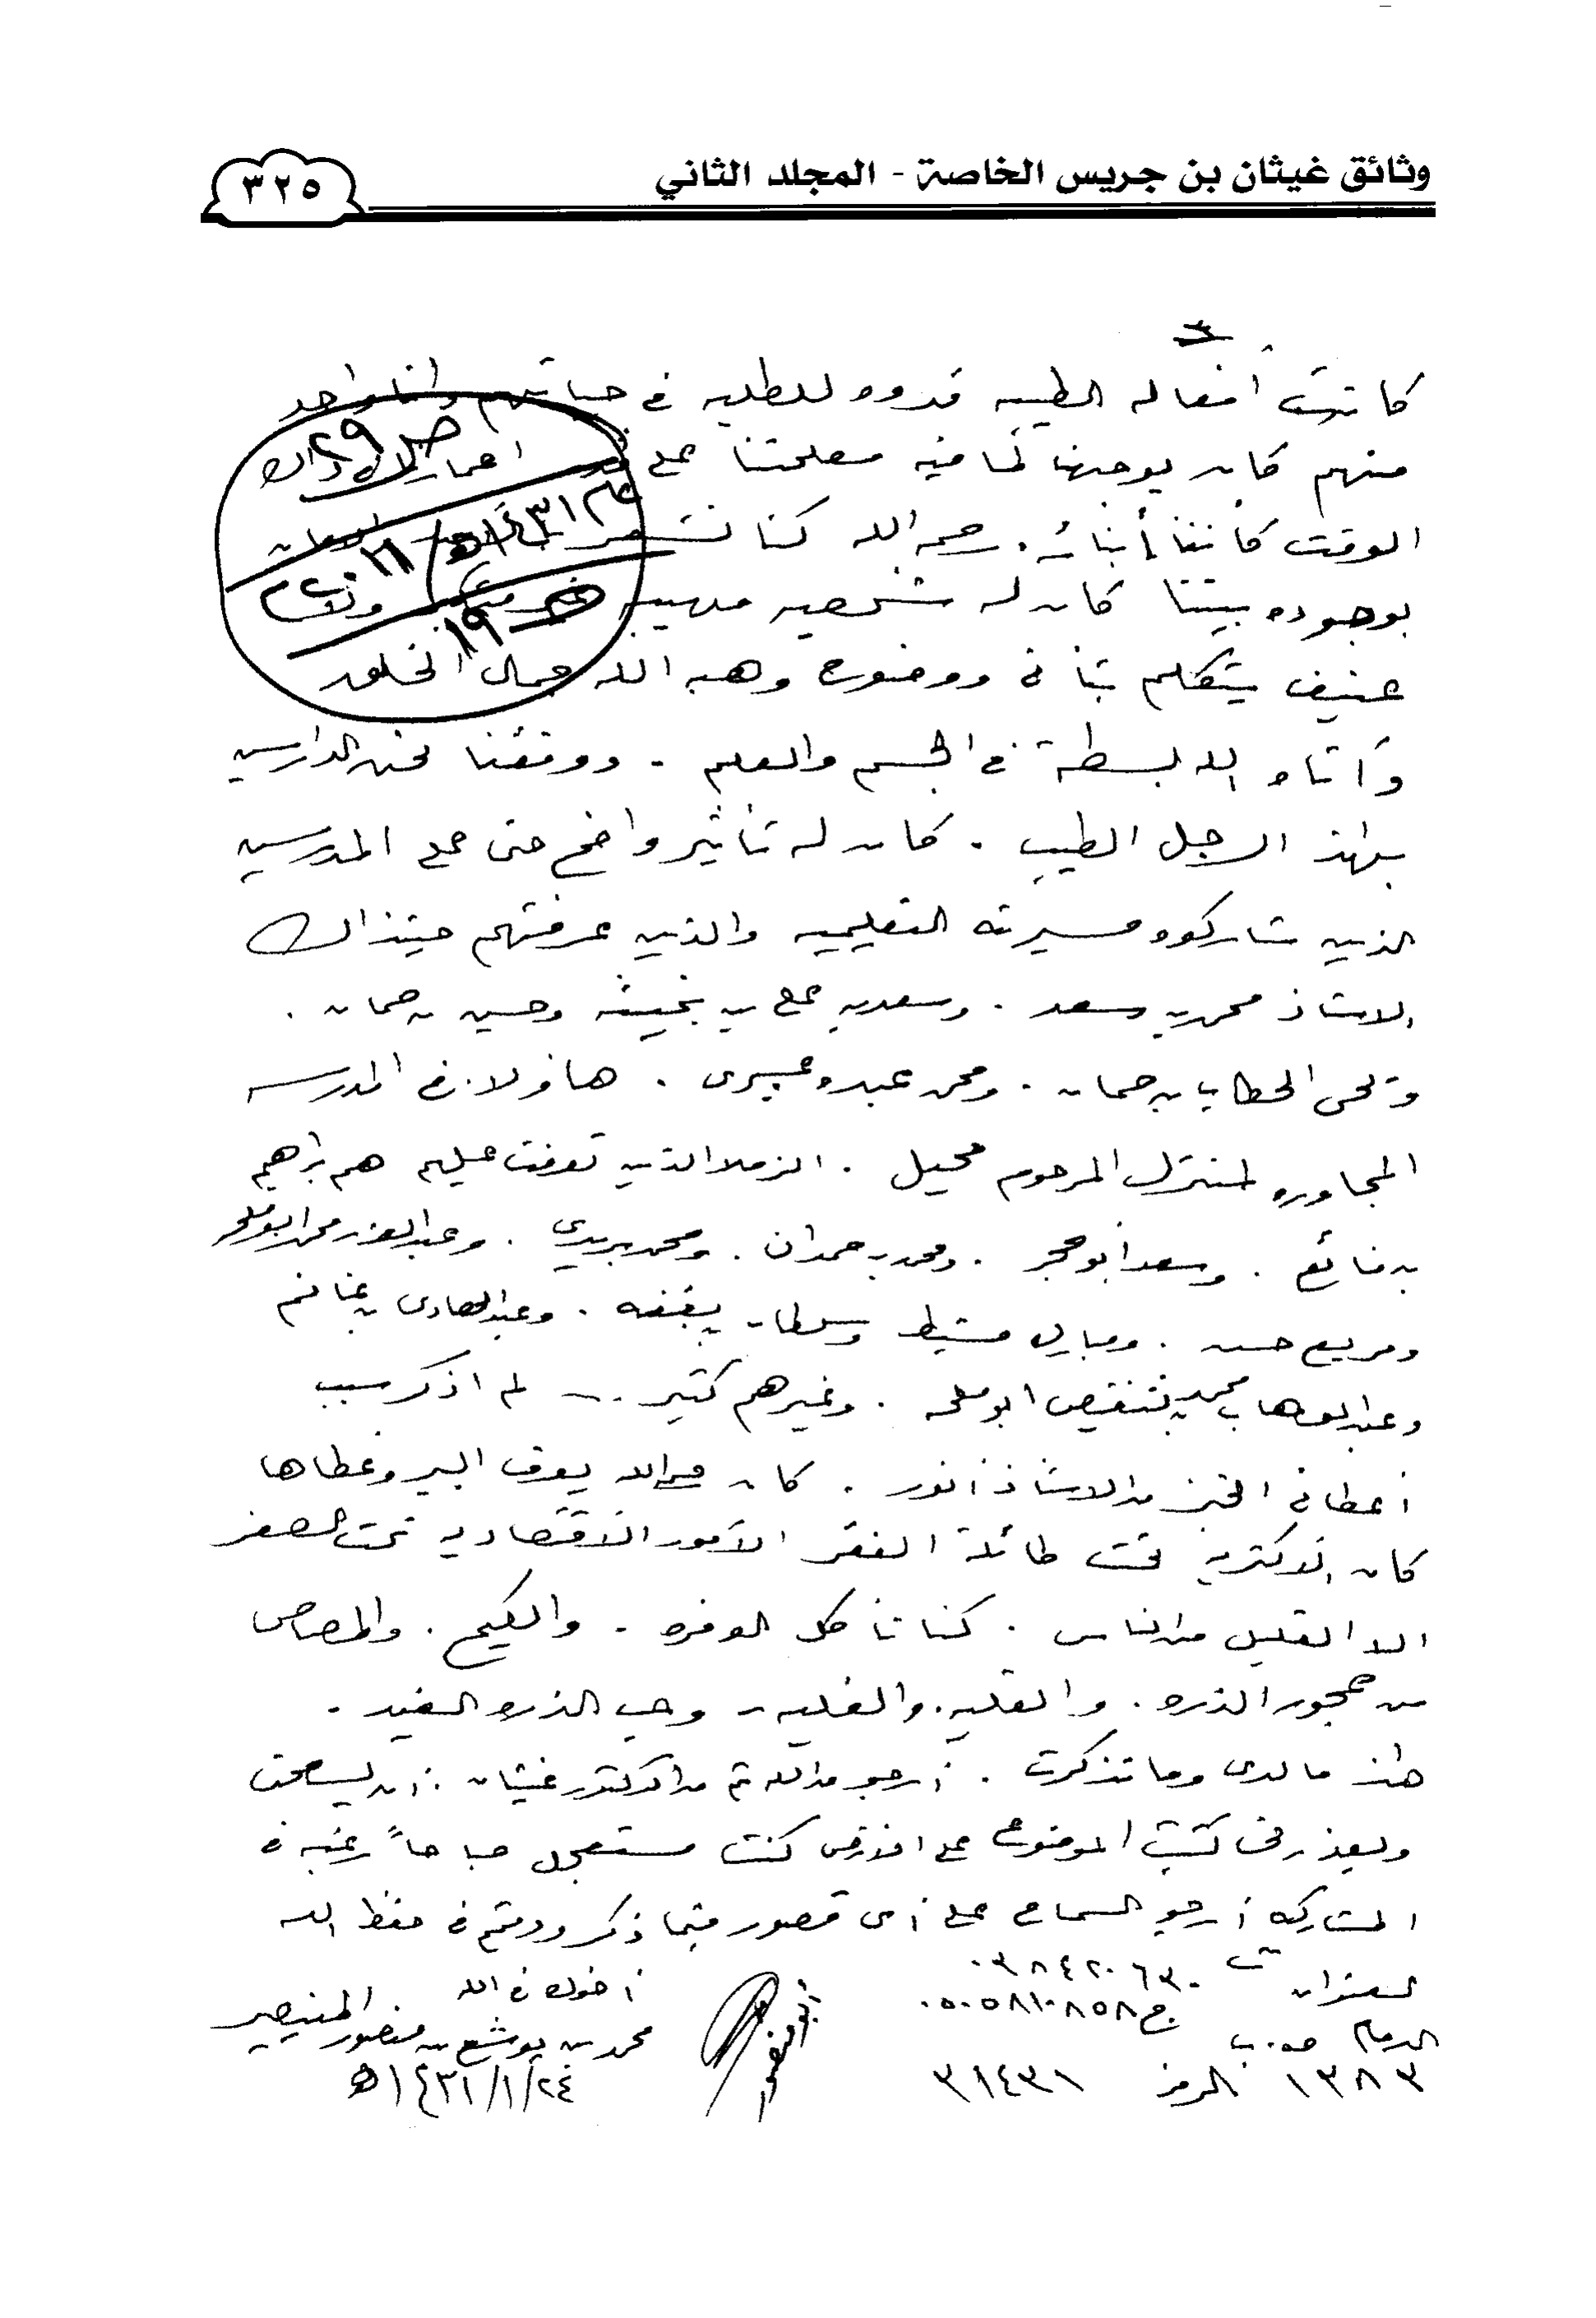 وثائق غيثان بن جريس الخاصة - المجلد الثاني
٣٢٥
٣
كانت افعاله الطيبه قدوه للطلبه في حياتهم وانا واحد
منهم كان يوجهنا لما فيه مصلحتنا على
الوقت كأننا أبنائه. رحمه الله كنا نشعر
بوجوده بيننا كان له شخصيه مهيبه
عنيف يتكلم بتأني ووضوح وهبه الله جمال الخلق
وآتاه الله بسطة في الجسم والعلم . ووفقنا نحن الدارسين
بهذا الرجل الطيب . كان له تأثير واضح حتى على المدرسين
الذين شاركوه مسيرته التعليميه والذين عرفتهم حينذاك
الاستاذ محمد بن سعد . وسعد بن علي بن بخيته وحسين بن حمان .
ويحي الحطاب بن حمان . ومحمد عبده عسيري . هاؤلاء في المدرسه
المجاوره لمنزل المرحوم محيل . الزملا الذين تعرفت عليهم هم براهيم
بن فائع . وسعد أبو حجر . ومحمد بن حمدان . ومحمد بريدي . وعبدالعزيز محمد ابو ملحه
ومريع حسن . ومبارك مشيط وسلطان بن . وعبدالهادي بن غانم
وعبدالوهاب محمد بن ابو ملحه . وغيرهم كثير .... لم اذكر سبب
أعطاني الخبز من الاستاذ أنور . كان رحمه الله يعرف البير وغطاها
كان الاكثريه تحت طائلة الفقر الأمور الاقتصاديه تحت الصفر
الا القليل من الناس . كنا نأكل الوفره . والكيح . والمصاص
من حجور الذره . والقليه . والغليه .. وحب الذره السفيد .
هذا ما لدي وما تذكرت . أرجو من الله ثم من الدكتور غيثان . أن يسامحني
ويعذرني كتبت الموضوع على كنت مستعجل صباحاً رغبه في
المشاركه أرجو السماح على أي قصور فيما ذكر ودمتم في حفظ الله
العنوان ت ٠٣٨٤٢٠٦٣٠
ج ٠٥٠٥٨١٠٨٥٨
الدمام ص.ب
١٣٨٣ الرمز ٣١٤٣١
أخوك في الله
محمد بن يوشع بن منصور المنيصير
٢٤/١/١٤٣١هـ